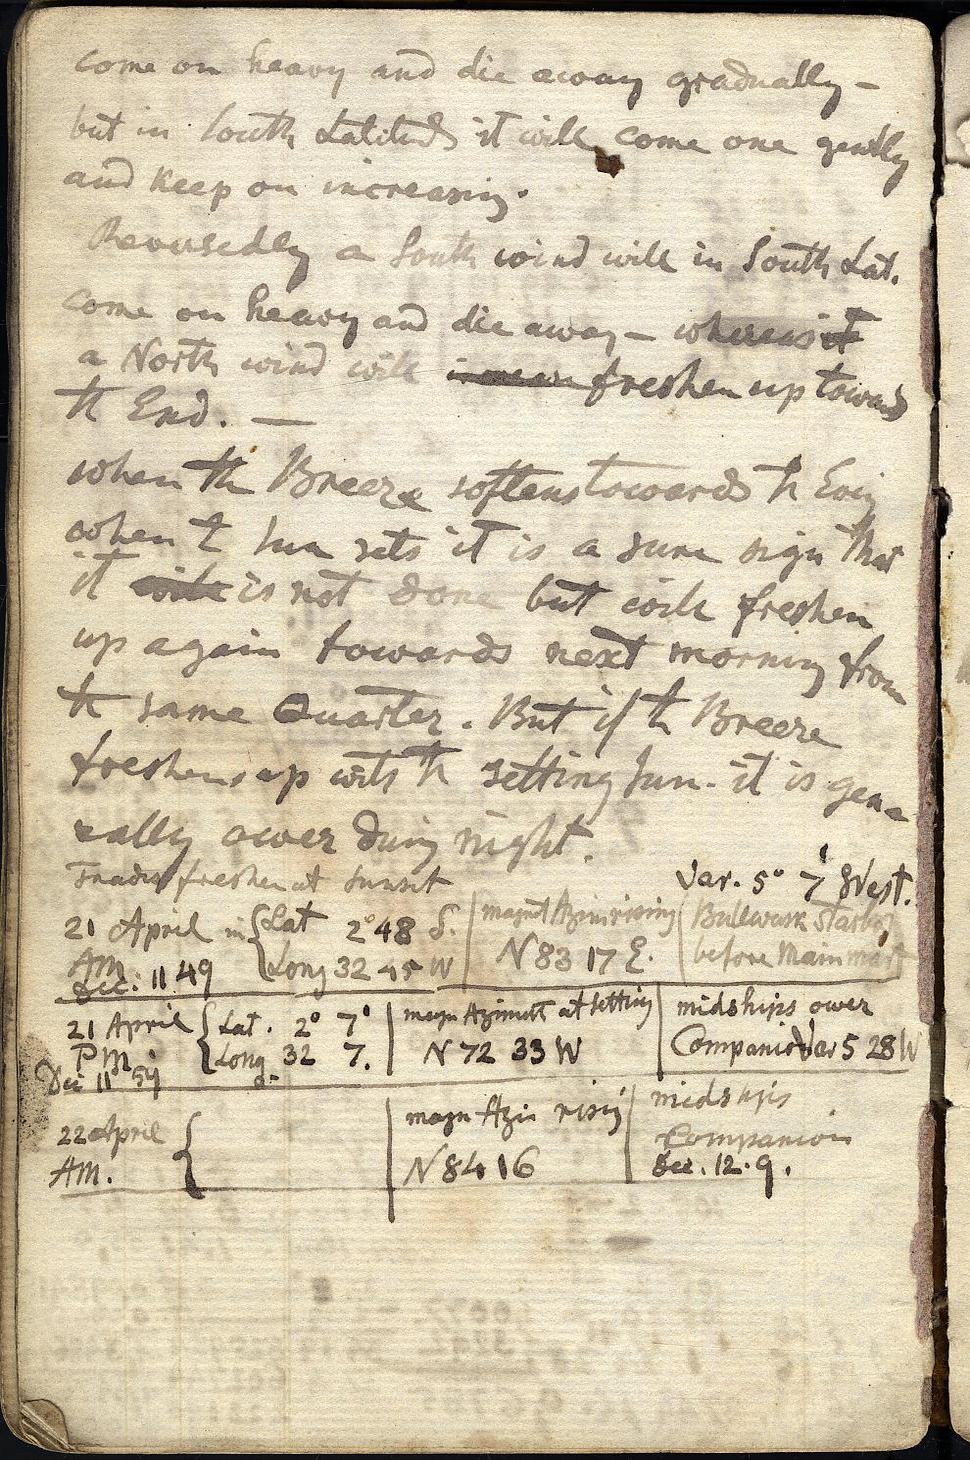 come on heavy and die away gradually –
but in South Latitud it will come one gently
and keep on increasing.
Reversedly a South wind will in South Lat.
come on heavy and die away – whereas it
a North wind will freshen up towards
th End. —
when th Breeze softens towards th Evig
when t Sun sets it is a sure sign that
it will is not done but will freshen
up again towards next morning from
th same Quarter. But if th Breeze
freshens up with th setting Sun. it is gene
rally ower during night.
Trades freshen at Sunset
Var. 5° 7' West.
21 April in { Lat 2° 48 S. | magnt Azim rising | Bullwark Starbo
AM { Long 32 45 W | N 83 17 E. | before Main mast
Dec: 11 49
21 April { Lat. 2° 7' | magn Azimutt at setting | midships ower
PM { Long 32 7. | N 72 33 W | Companion Var 5 28 W
Dec 11 59
22 April { | magn Azi rising | midships
AM. | N 84 16 | Companion
Dec. 12. 9.